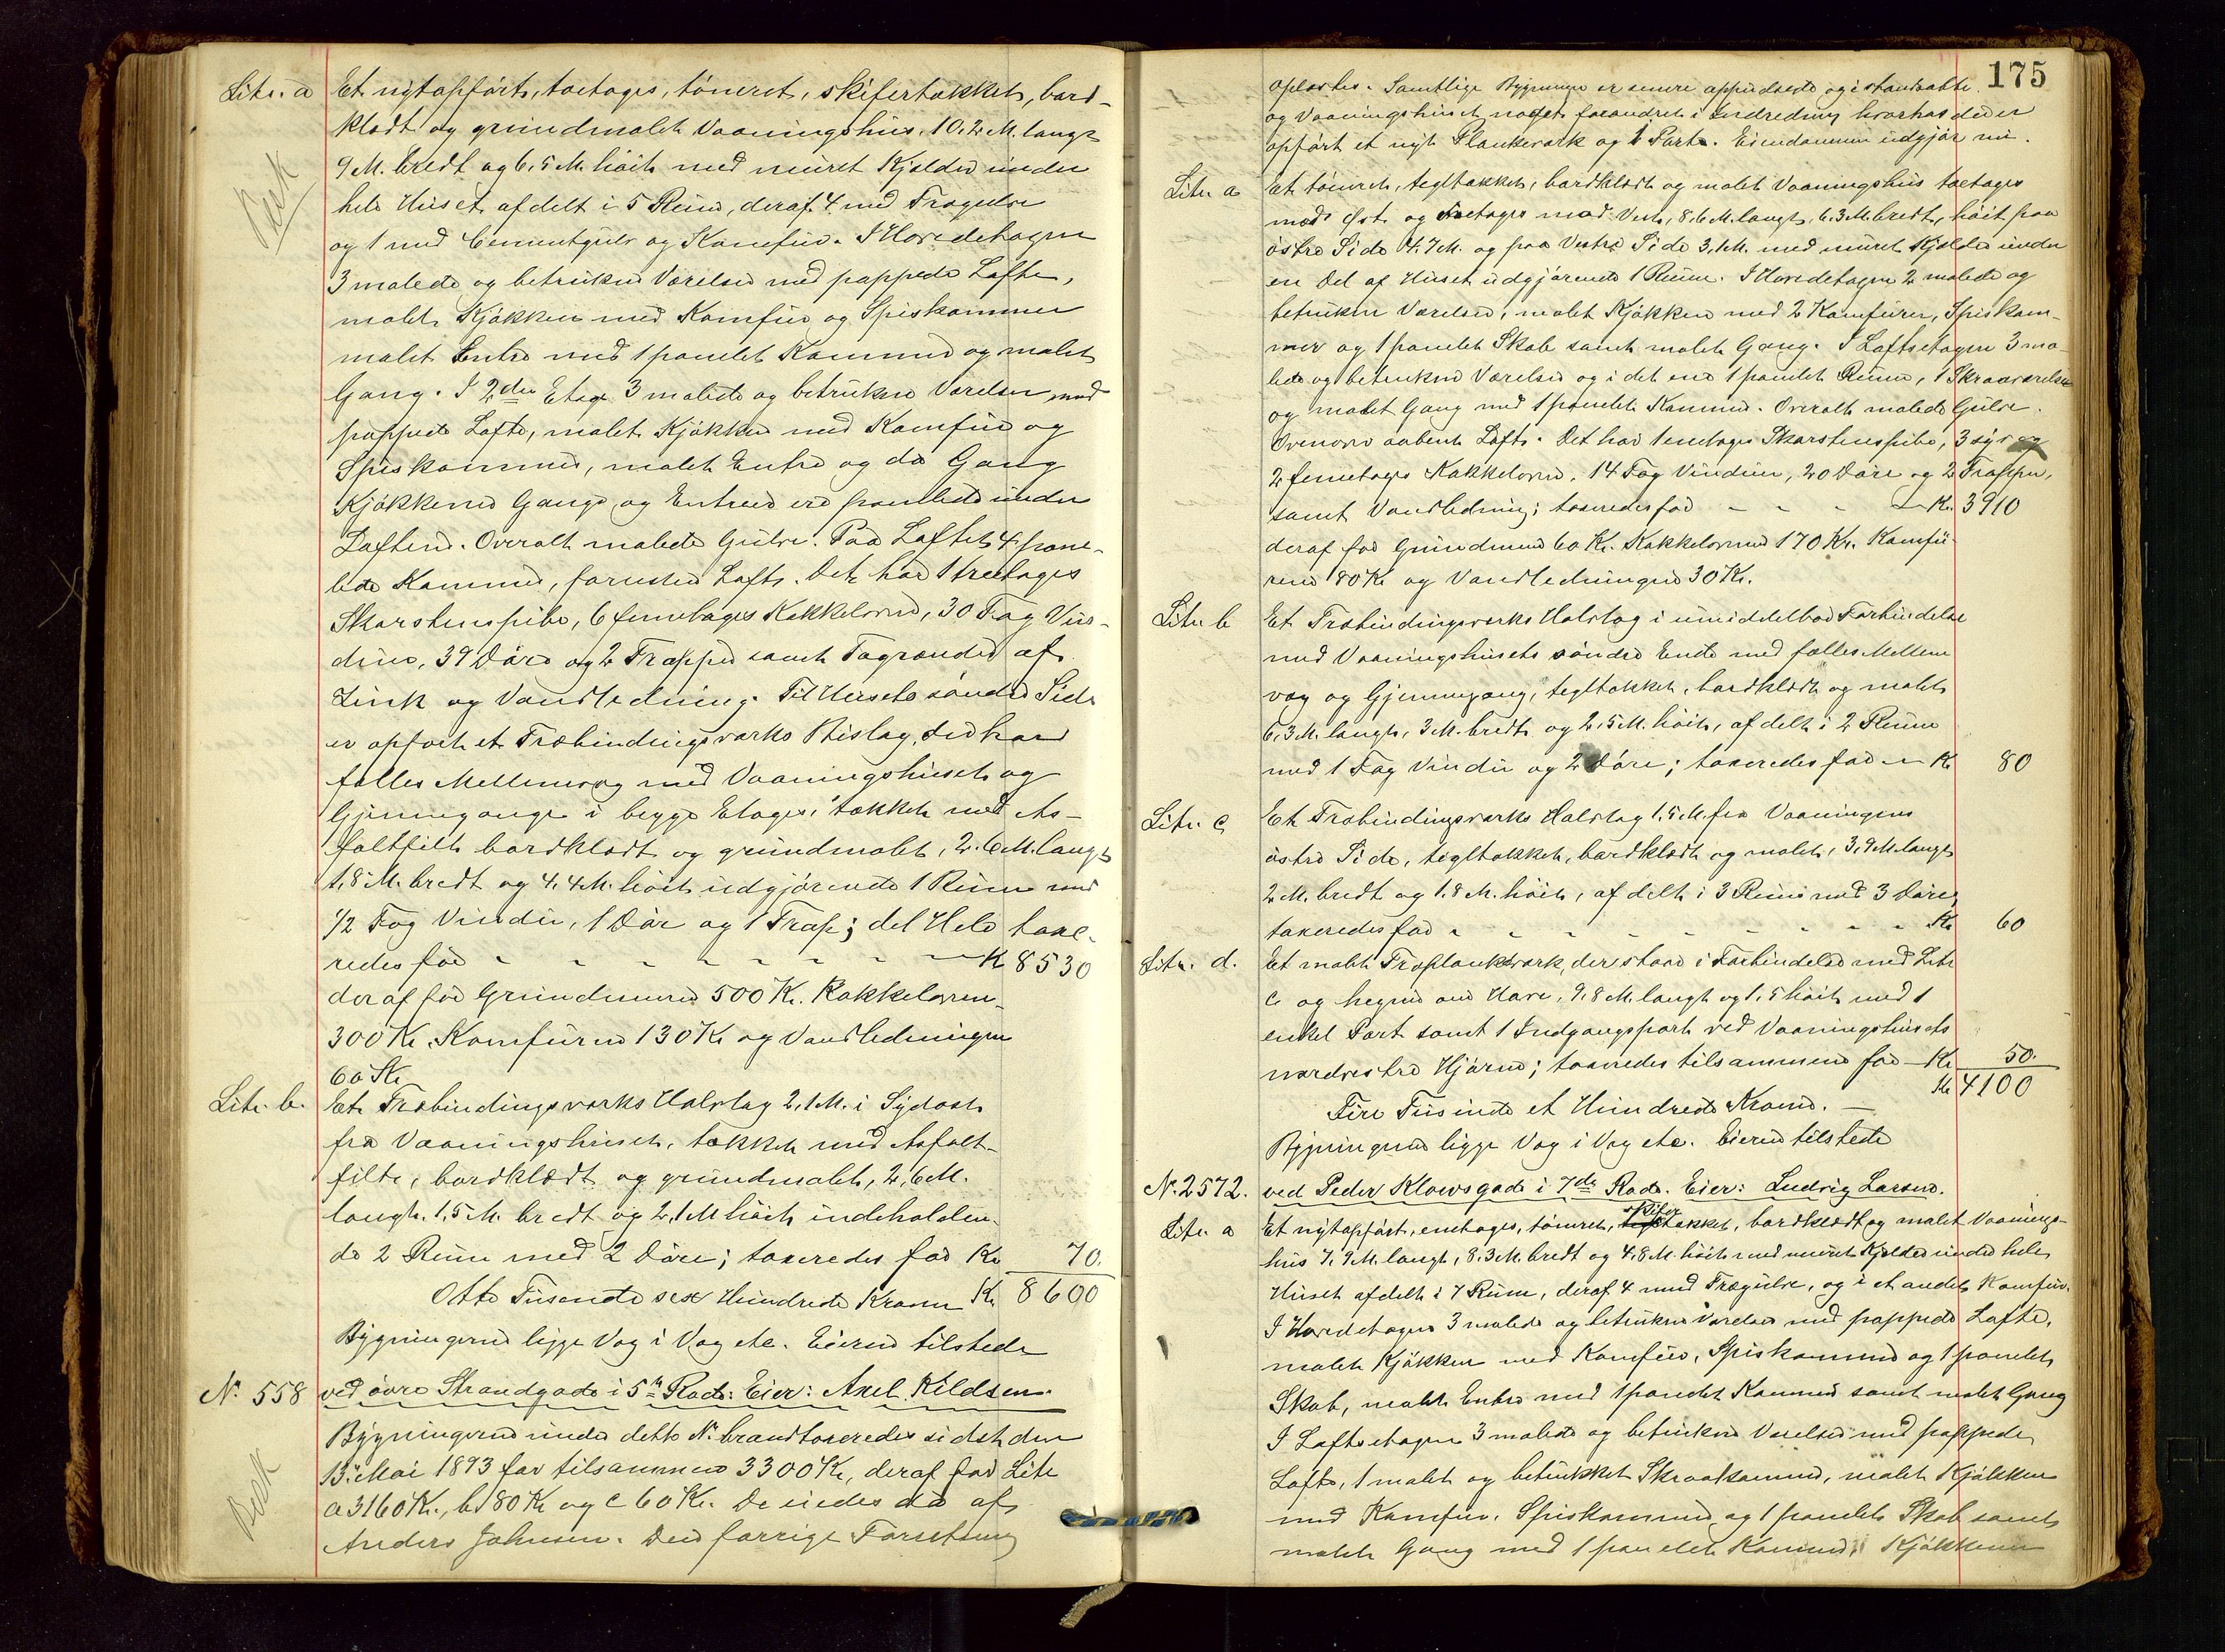 Litr. a Et nýtopført, toetages, tömret, skifertækket, bord-
klædt og grundmalet Vaaningshus, 10,2 M. langt
9 M. bredt og 6,5 M. höit med muret Kjelder under
hele Huset afdelt i 5 Rum, deraf 4 med Trægulve
og 1 med Cementgulv og Komfur. I Hovedetagen
3 malede og betrukne Værelser med pappede Lofte,
malet Kjökken med Komfur og Spiskammer
malet Entre med 1 panelet Kammer og malet
Gang. I 2den Etage 3 malede og betrukne Værelser med
pappede Lofte, malet Kjökken med Komfur og
Spiskammer, malet Entre og do Gang
Kjökkenet Gange og Entreer er panelede under
Loftene. Overalt malede Gulve. Paa Loftet 4 pane-
lede Kammer, forresten Loft. Det har 1 treetages
Skorstenspibe, 6 femetages Kakkelovne, 30 Fag Vin-
duer, 39 Döre og 2 Trapper samt Tagrender af
Zink og Vandledning. Til Husets söndre Side
er opført et Træbindingsværks Bislag, der har
fælles Mellemvæg med Vaaningshuset og
Gjennemgange i begge Etager, tækket med As-
faltfilt bordklædt og grundmalet, 2,6 M. langt
1,8 M. bredt og 4,4 M. höit udgjörende 1 Rum med
1/2 Fag Vindu, 1 Dör og 1 Trap; det Hele taxe-
redes for - - - - - - - Kr 8530
deraf for Grundmuren 500 Kr. Kakkelovnen-
300 Kr. Komfurene 130 Kr og Vandledningen
60 Kr
Litr. b. Et Træbindingsværks Halvtag 2,1 M. i Sydost
fra Vaaningshuset, tækket med Asfalt-
filt, bordklædt og grundmalet, 2,6 M.
langt, 1,5 M. bredt og 2,1 M höit indeholden-
de 2 Rum med 2 Döre; taxeredes for Kr 70.
Otte Tusende sex Hundrede Kroner Kr 8600
Bygningerne ligge Væg i Væg etc. Eieren tilstede
No 558 ved övre Strandgade i 5te Rode: Eier: Axel Kildsen.
Bygningerne under dette No brandtaxeredes sidst den
13. Mai 1893 for tilsammen 3300 Kr, deraf for Litr
a 3160 Kr., b 80 Kr og c 60 Kr. De eiedes da af
Anders Johnsen. Den forrige Forretning
175
oplæstes. Samtlige Bygninger er senere oppudsede og istandsatte.
og Vaaningshuset noget forandret i Indredning hvorhos der er
opfört et nyt Plankeværk og 2 Porte. Eiendommen udgjör nu.
Litr. a Et tömret, tegltækket, bordklædt og malet Vaaningshus toetages
mod Öst og treetages mod Vest, 8,6 M. langt, 6,3 M. bredt, höit paa
östre Side 4,7 M. og paa Vestre Side 3,1 M. med muret Kjelder under
en Del af Huset udgjörende 1 Rum. I Hovedetagen 2 malede og
betrukne Værelser, malet Kjökken med 2 Komfurer, Spiskam-
mer og 1 panelet Skab samt malet Gang. I Loftsetagen 3 ma-
lede og betrukne Værelser og i det ene 1 panelet Rum, 1 Skraaværelse
og malet Gang med 1 panelet Kammer. Overalt malede Gulve.
Ovenover aabent Loft. Det har 1 enetages Skorstenspibe, 3 syv og
2 femetages Kakkelovne, 14 Fag Vinduer, 20 Döre og 2 Trapper,
samt Vandledning; taxeredes for - - - - Kr. 3910
deraf for Grundmuren 60 Kr. Kakkelovnene 170 Kr. Komfu-
rene 80 Kr og Vandledningen 30 Kr.
Litr b Et Træbindingsværks Halvtag i umiddelbar Forbindelse
med Vaaningshusets söndre Ende med fælles Mellem
væg og Gjennemgang, tegltækket, bordklædt og malet
6,3 M. langt, 3 M. bredt og 2,5 M. höit, afdelt i 2 Rum
med 1 Fag Vindu og 2 Döre; taxeredes for - Kr 80
Litr. c Et Træbindingsværks Halvtag 1,5 M. fra Vaaningens
östre Side, tegltækket, bordklædt og malet, 3,9 M. langt
2 M. bredt og 1,8 M. höit, afdelt i 3 Rum med 3 Döre,
taxeredes for - - - - - - - - - Kr 60
Litr. d. Et malet Træplankeværk, der staar i Forbindelse med Litr
c og hegner om Have, 9,8 M. langt og 1,5 höit med 1
enkel Port samt 1 Indgangsport ved Vaaningshusets
nordvestre Hjörne; taxeredes tilsammen for - Kr 50.
Kr 4100
Fire Tusinde et Hundrede Kroner. -
Bygningerne ligge Væg i Væg etc. Eieren tilstede
No. 2572. ved Peder Klowsgade i 7de Rode. Eier: Ludvig Larsen.
Litr. a Et nýtopfört, enetages, tömret, skifertækket, bordklædt og malet Vaanings-
hus 7,9 M. langt, 8,3 M. bredt og 4,8 M. höit med muret Kjelder under hele
Huset afdelt i 7 Rum, deraf 4 med Trægulve, og i et andet Komfur.
I Hovedetagen 3 malede og betrukne Værelser med pappede Lofte,
malet Kjökken med Komfur, Spiskammer og 1 panelet
Skab, malet Entre med 1 panelet Kammer samt malet Gang
I Loftsetagen 3 malede og betrukne Værelser med pappede
Lofte, 1 malet og betrukket Skraakammer, malet Kjökken
med Komfur, Spiskammer og 1 panelet Skab samt
malet Gang med 1 panelet Kammer. Kjökkenet